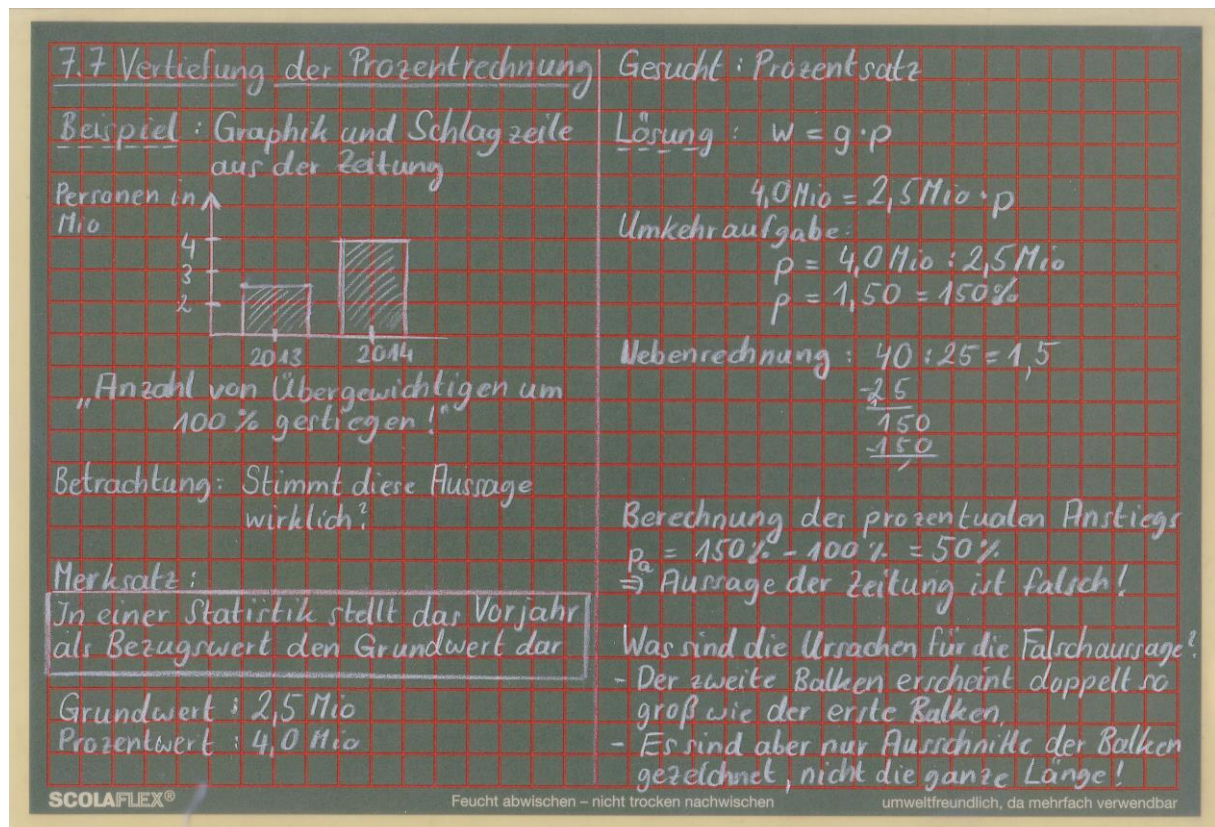 7.7 Vertiefung der Prozentrechnung
Beispiel : Graphik und Schlagzeile
aus der Zeitung
Personen in
Mio
4
3
2
2013 2014
„Anzahl von Übergewichtigen um
100 % gestiegen!"
Betrachtung: Stimmt diese Aussage
wirklich?
Merksatz:
In einer Statistik stellt das Vorjahr
als Bezugswert den Grundwert dar
Grundwert : 2,5 Mio
Prozentwert : 4,0 Mio
Gesucht : Prozentsatz
Lösung : w = g · p
4,0 Mio = 2,5 Mio · p
Umkehraufgabe:
p = 4,0 Mio : 2,5 Mio
p = 1,50 = 150%
Nebenrechnung : 40 : 25 = 1,5
-25
150
-150
,
Berechnung des prozentualen Anstiegs
pa = 150% - 100 % = 50%
⇒ Aussage der Zeitung ist falsch!
Was sind die Ursachen für die Falschaussage?
- Der zweite Balken erscheint doppelt so
groß wie der erste Balken,
- Es sind aber nur Ausschnitte der Balken
gezeichnet, nicht die ganze Länge!
SCOLAFLEX® Feucht abwischen – nicht trocken nachwischen umweltfreundlich, da mehrfach verwendbar